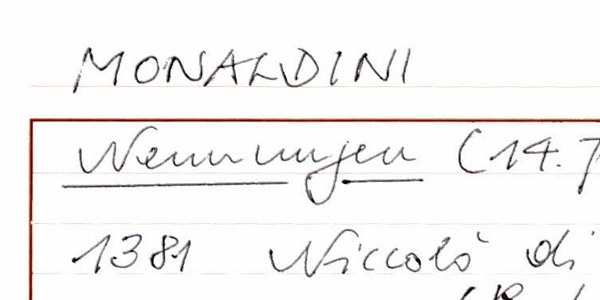 MONALDINI
Nennungen (14.7
1381 Niccolò di